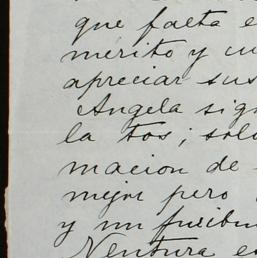 que falta e
merito y cu
apreciar sus
Angela sig
la tos; sol
macion de
mejor pero
y un furibun
Ventura e